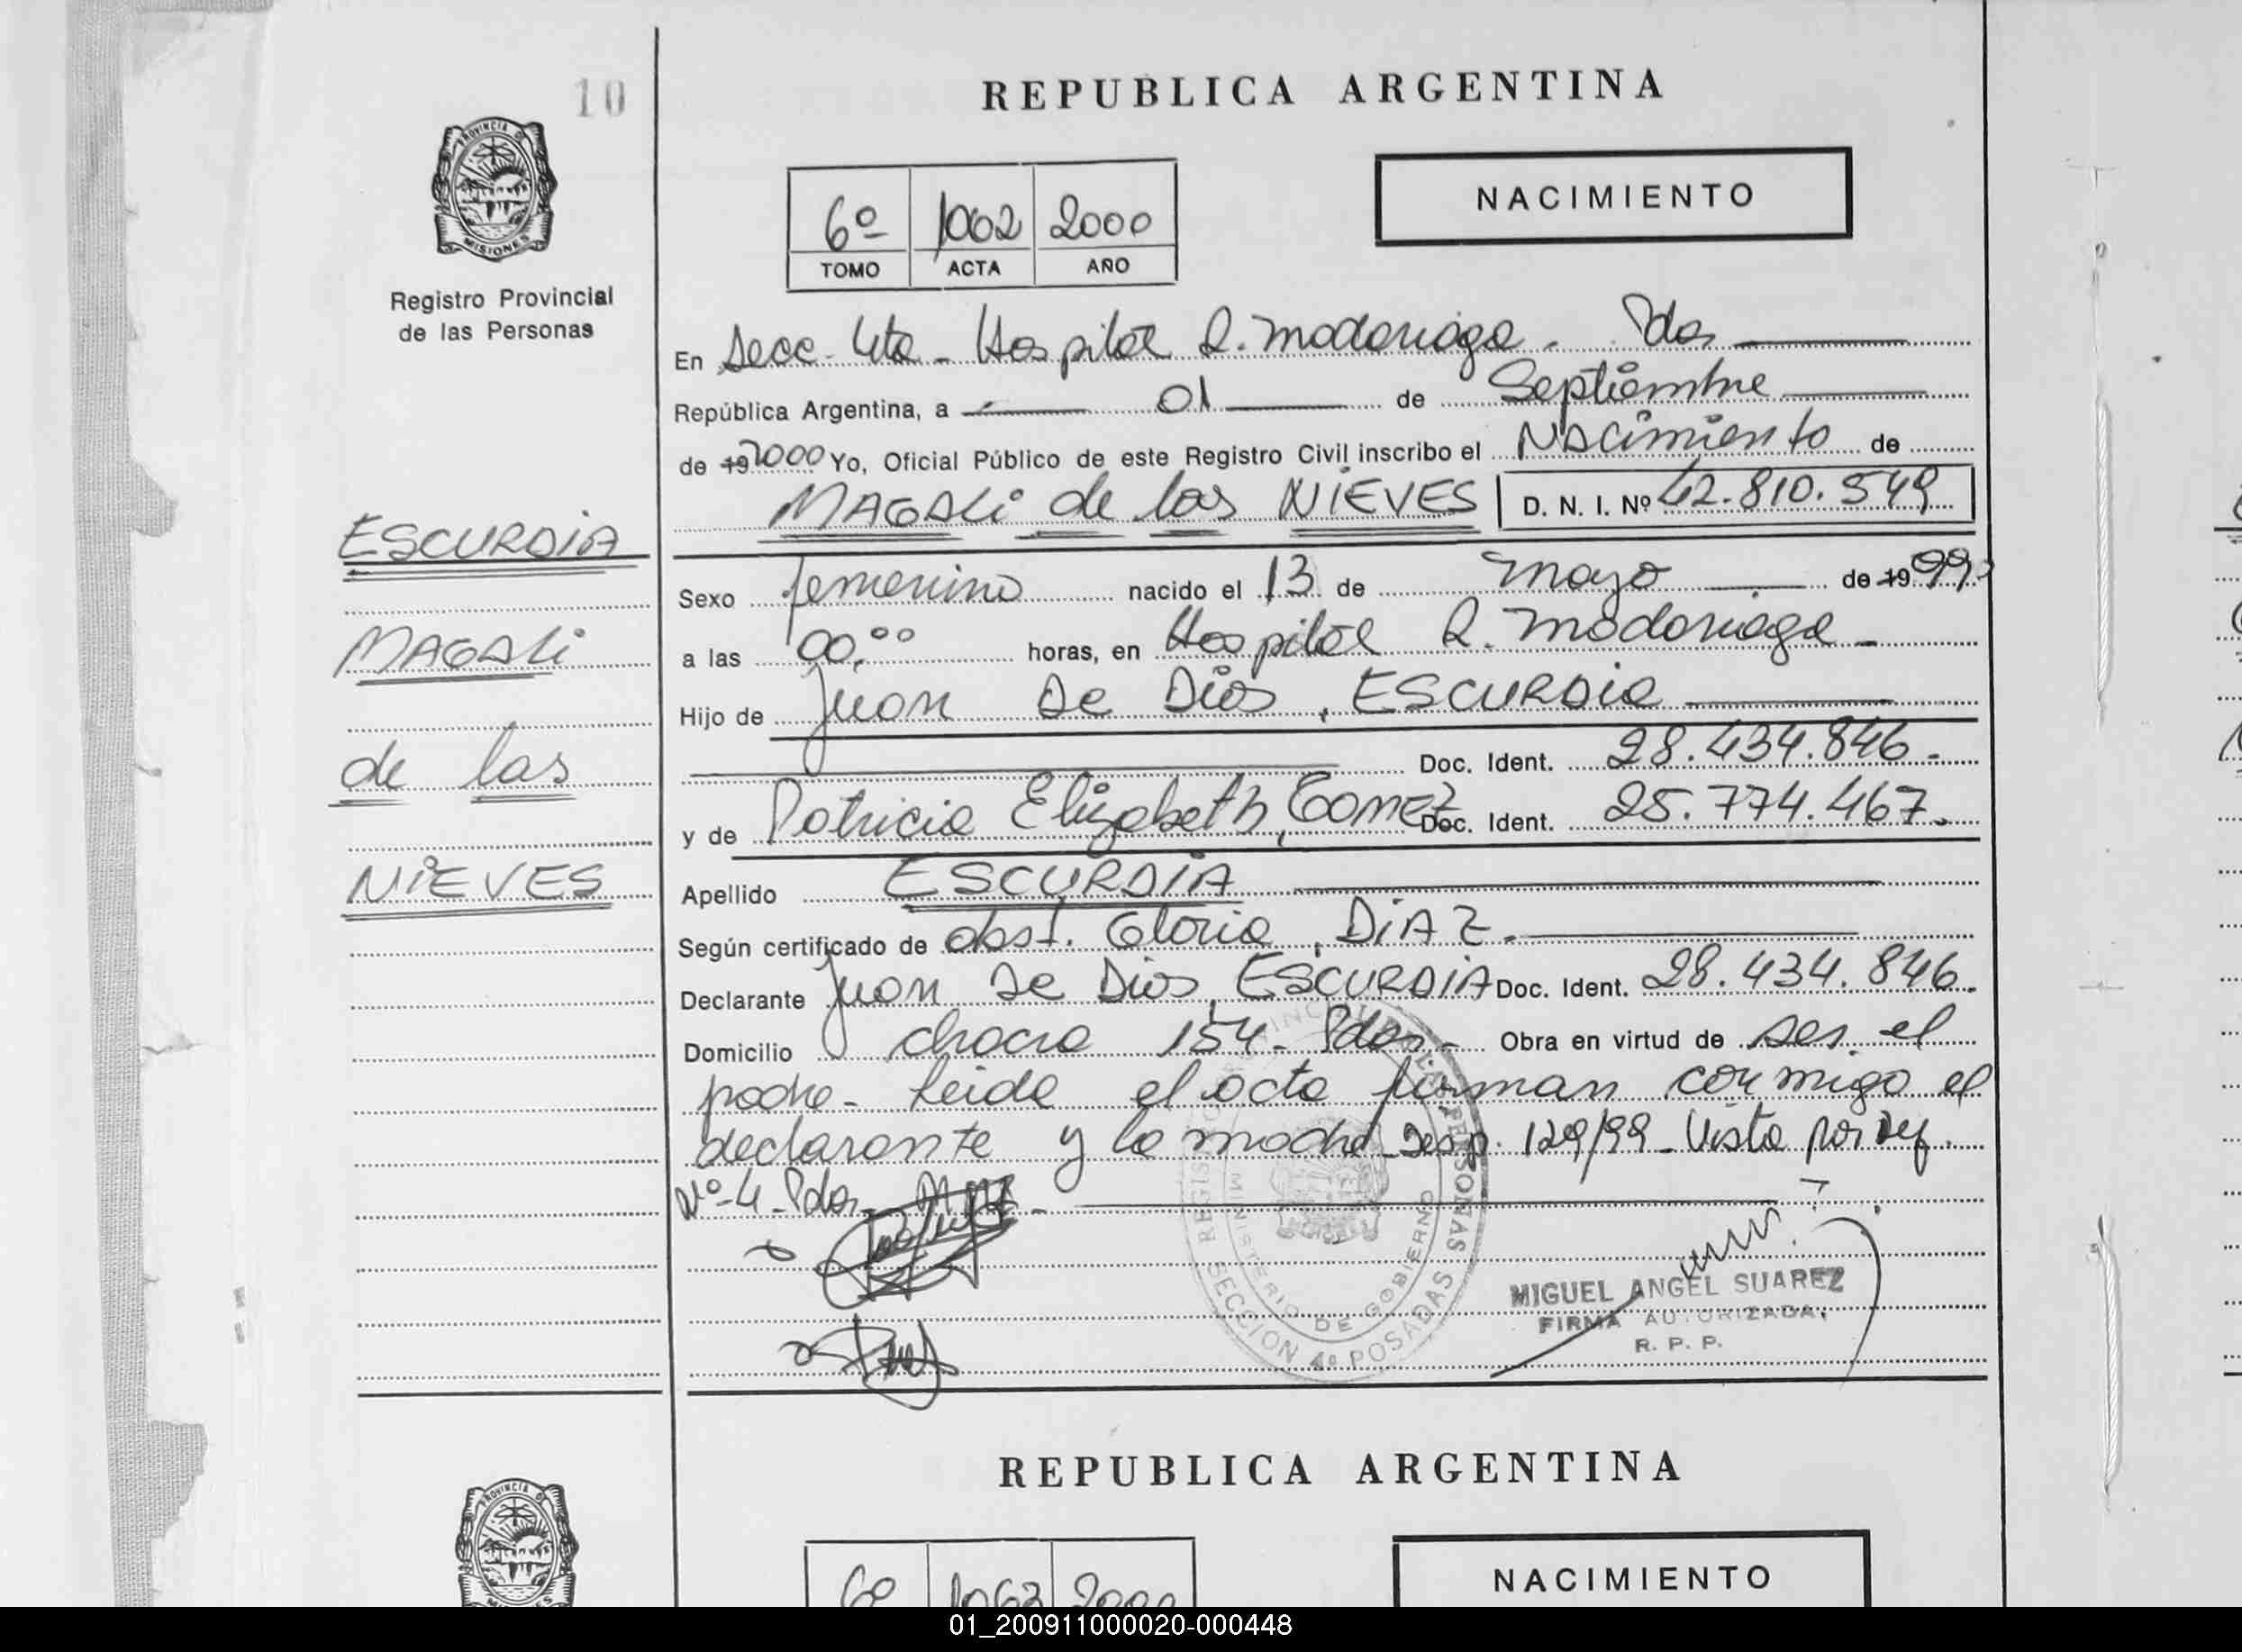 10
REPUBLICA ARGENTINA
PROVINCIA DE
MISIONES
Registro Provincial
de las Personas
6º 1062 2000
TOMO ACTA AÑO
NACIMIENTO
En Secc. 4ta - Hospital R. Madariaga - Pdas
República Argentina, a 01 de Septiembre
de 19 2000 Yo, Oficial Público de este Registro Civil inscribo el Nacimiento de
MAGALi de las NIEVES D. N. I. Nº 42.810.549
ESCURDIA
MAGALi
de las
NIEVES
Sexo femenino nacido el 13 de mayo de 19 99
a las 00,00 horas, en Hospital R. Madariaga -
Hijo de Juan De Dios, ESCURDIA
Doc. Ident. 28.434.846.-
y de Patricia Elizabeth, Gomez Doc. Ident. 25.774.467.
Apellido ESCURDIA
Según certificado de obst. Gloria, DIAZ.
Declarante Juan De Dios, ESCURDIA Doc. Ident. 28.434.846.
Domicilio chacra 154 - Pdas - Obra en virtud de ser el
padre - Leida el acta firman conmigo el
declarante y la madre Disp. 129/99 - Vista por
Nº 4 - Pdas -
REGISTRO PROVINCIAL DE LAS PERSONAS
MINISTERIO DE GOBIERNO
SECCION 4º POSADAS
MIGUEL ANGEL SUAREZ
FIRMA AUTORIZADA
R. P. P.
REPUBLICA ARGENTINA
PROVINCIA DE
6º 1063 2000
NACIMIENTO
01_200911000020-000448